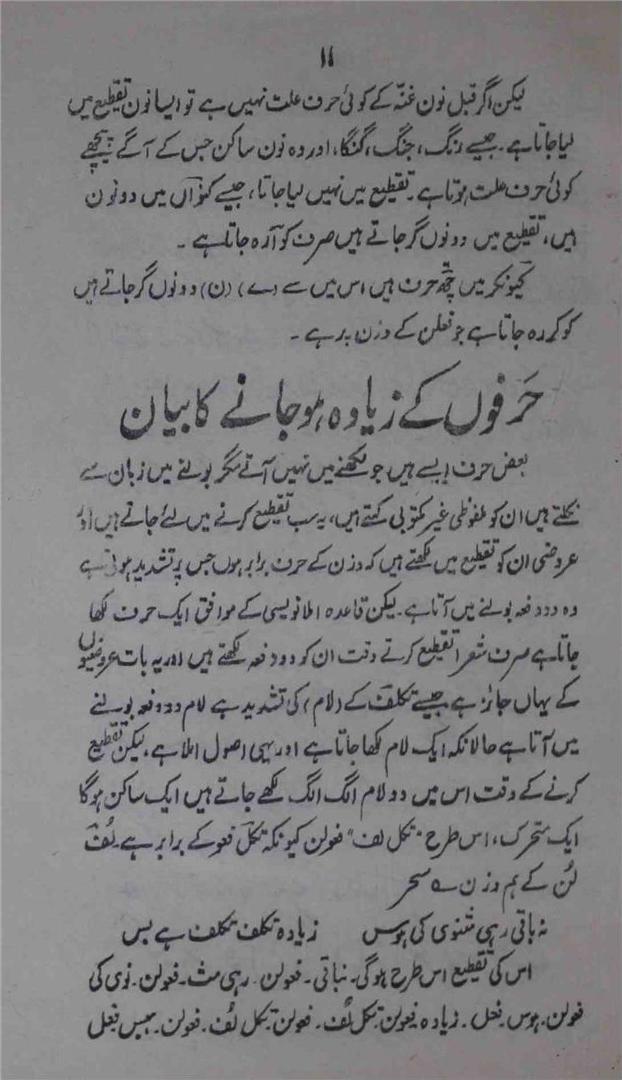 ۱۱
لیکن اگر قبل نون غنّہ کے کوئی حرف علت نہیں ہے تو ایسا نون تقطیع میں
لیا جاتا ہے۔ جیسے رنگ، جنگ، گنگا، اور وہ نون ساکن جس کے آگے پیچھے
کوئی حرف علت ہوتا ہے۔ تقطیع میں نہیں لیا جاتا، جیسے کنواں میں دو نون
ہیں، تقطیع میں دونوں گر جاتے ہیں صرف کوآ رہ جاتا ہے۔
کیونکر میں چھ حرف ہیں اس میں سے (ے) (ن) دونوں گر جاتے ہیں
کوکر رہ جاتا ہے جو فعلن کے وزن پر ہے۔
حَرفوں کے زیادہ ہو جانے کا بیان
بعض حرف ایسے ہیں جو لکھنے میں نہیں آتے مگر بولنے میں زبان سے
نکلتے ہیں ان کو ملفوظی غیر مکتوبی کہتے ہیں، یہ سب تقطیع کرنے میں لئے جاتے ہیں اور
عروضی ان کو تقطیع میں لکھتے ہیں کہ وزن کے حرف برابر ہوں جس پر تشدید ہوتی ہے
وہ دو دفعہ بولنے میں آتا ہے۔ لیکن قاعدہ املا نویسی کے موافق ایک حرف لکھا
جاتا ہے صرف شعرا تقطیع کرتے وقت ان کو دو دفعہ لکھتے ہیں اور یہ بات عروضیوں
کے یہاں جائز ہے جیسے تکلف کے (لام) کی تشدید ہے لام دو دفعہ بولنے
میں آتا ہے حالانکہ ایک لام لکھا جاتا ہے اور یہی اصول املا ہے، لیکن تقطیع
کرنے کے وقت اس میں دو لام الگ الگ لکھے جاتے ہیں ایک ساکن ہوگا
ایک متحرک، اس طرح "تکل لف" فعولن کیونکہ تکلَ فعو کے برابر ہے۔ لُفَ
لُن کے ہم وزن ہے سحر
نہ باقی رہی مثنوی کی ہوس زیادہ تکلف تکلف ہے بس
اس کی تقطیع اس طرح ہوگی۔ نباقی۔ فعولن۔ رہی مث۔ فعولن۔ نوی کی
فعولن۔ ہوس فعل۔ زیادہ فعولن۔ تکل لُف۔ فعولن۔ تکل لُف۔ فعولن۔ ہبس فعل